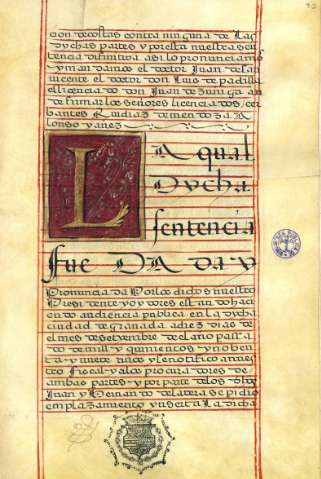 cion de costas contra ninguna de las
dychas partes y por esta nuestra sen
tencia difinitiva asi lo pronunciamos
y mandamos el doctor Juan de san
vicente el doctor don Luis de padilla
el licenciado don Juan de zuniga an
de firmar los señores licenciados cer
bantes Rui diaz de mendoza A
lonso yañez
LA qual
Dycha
sentencia
fue DA DA y
Pronuncia da Por los dichos nuestro
Presidente y oydores estando haci
endo audiencia publica en la dycha
ciudad de Granada a diez dias de
el mes de setiembre de el año passa
do de mill y quinientos y nobenta
y nueve años y se notifico a nuestro
Fiscal y a los procuradores de
ambas partes y por parte de los dhos
Juan y Hernando de la tera se pidio
emplazamiento y vista La dicha